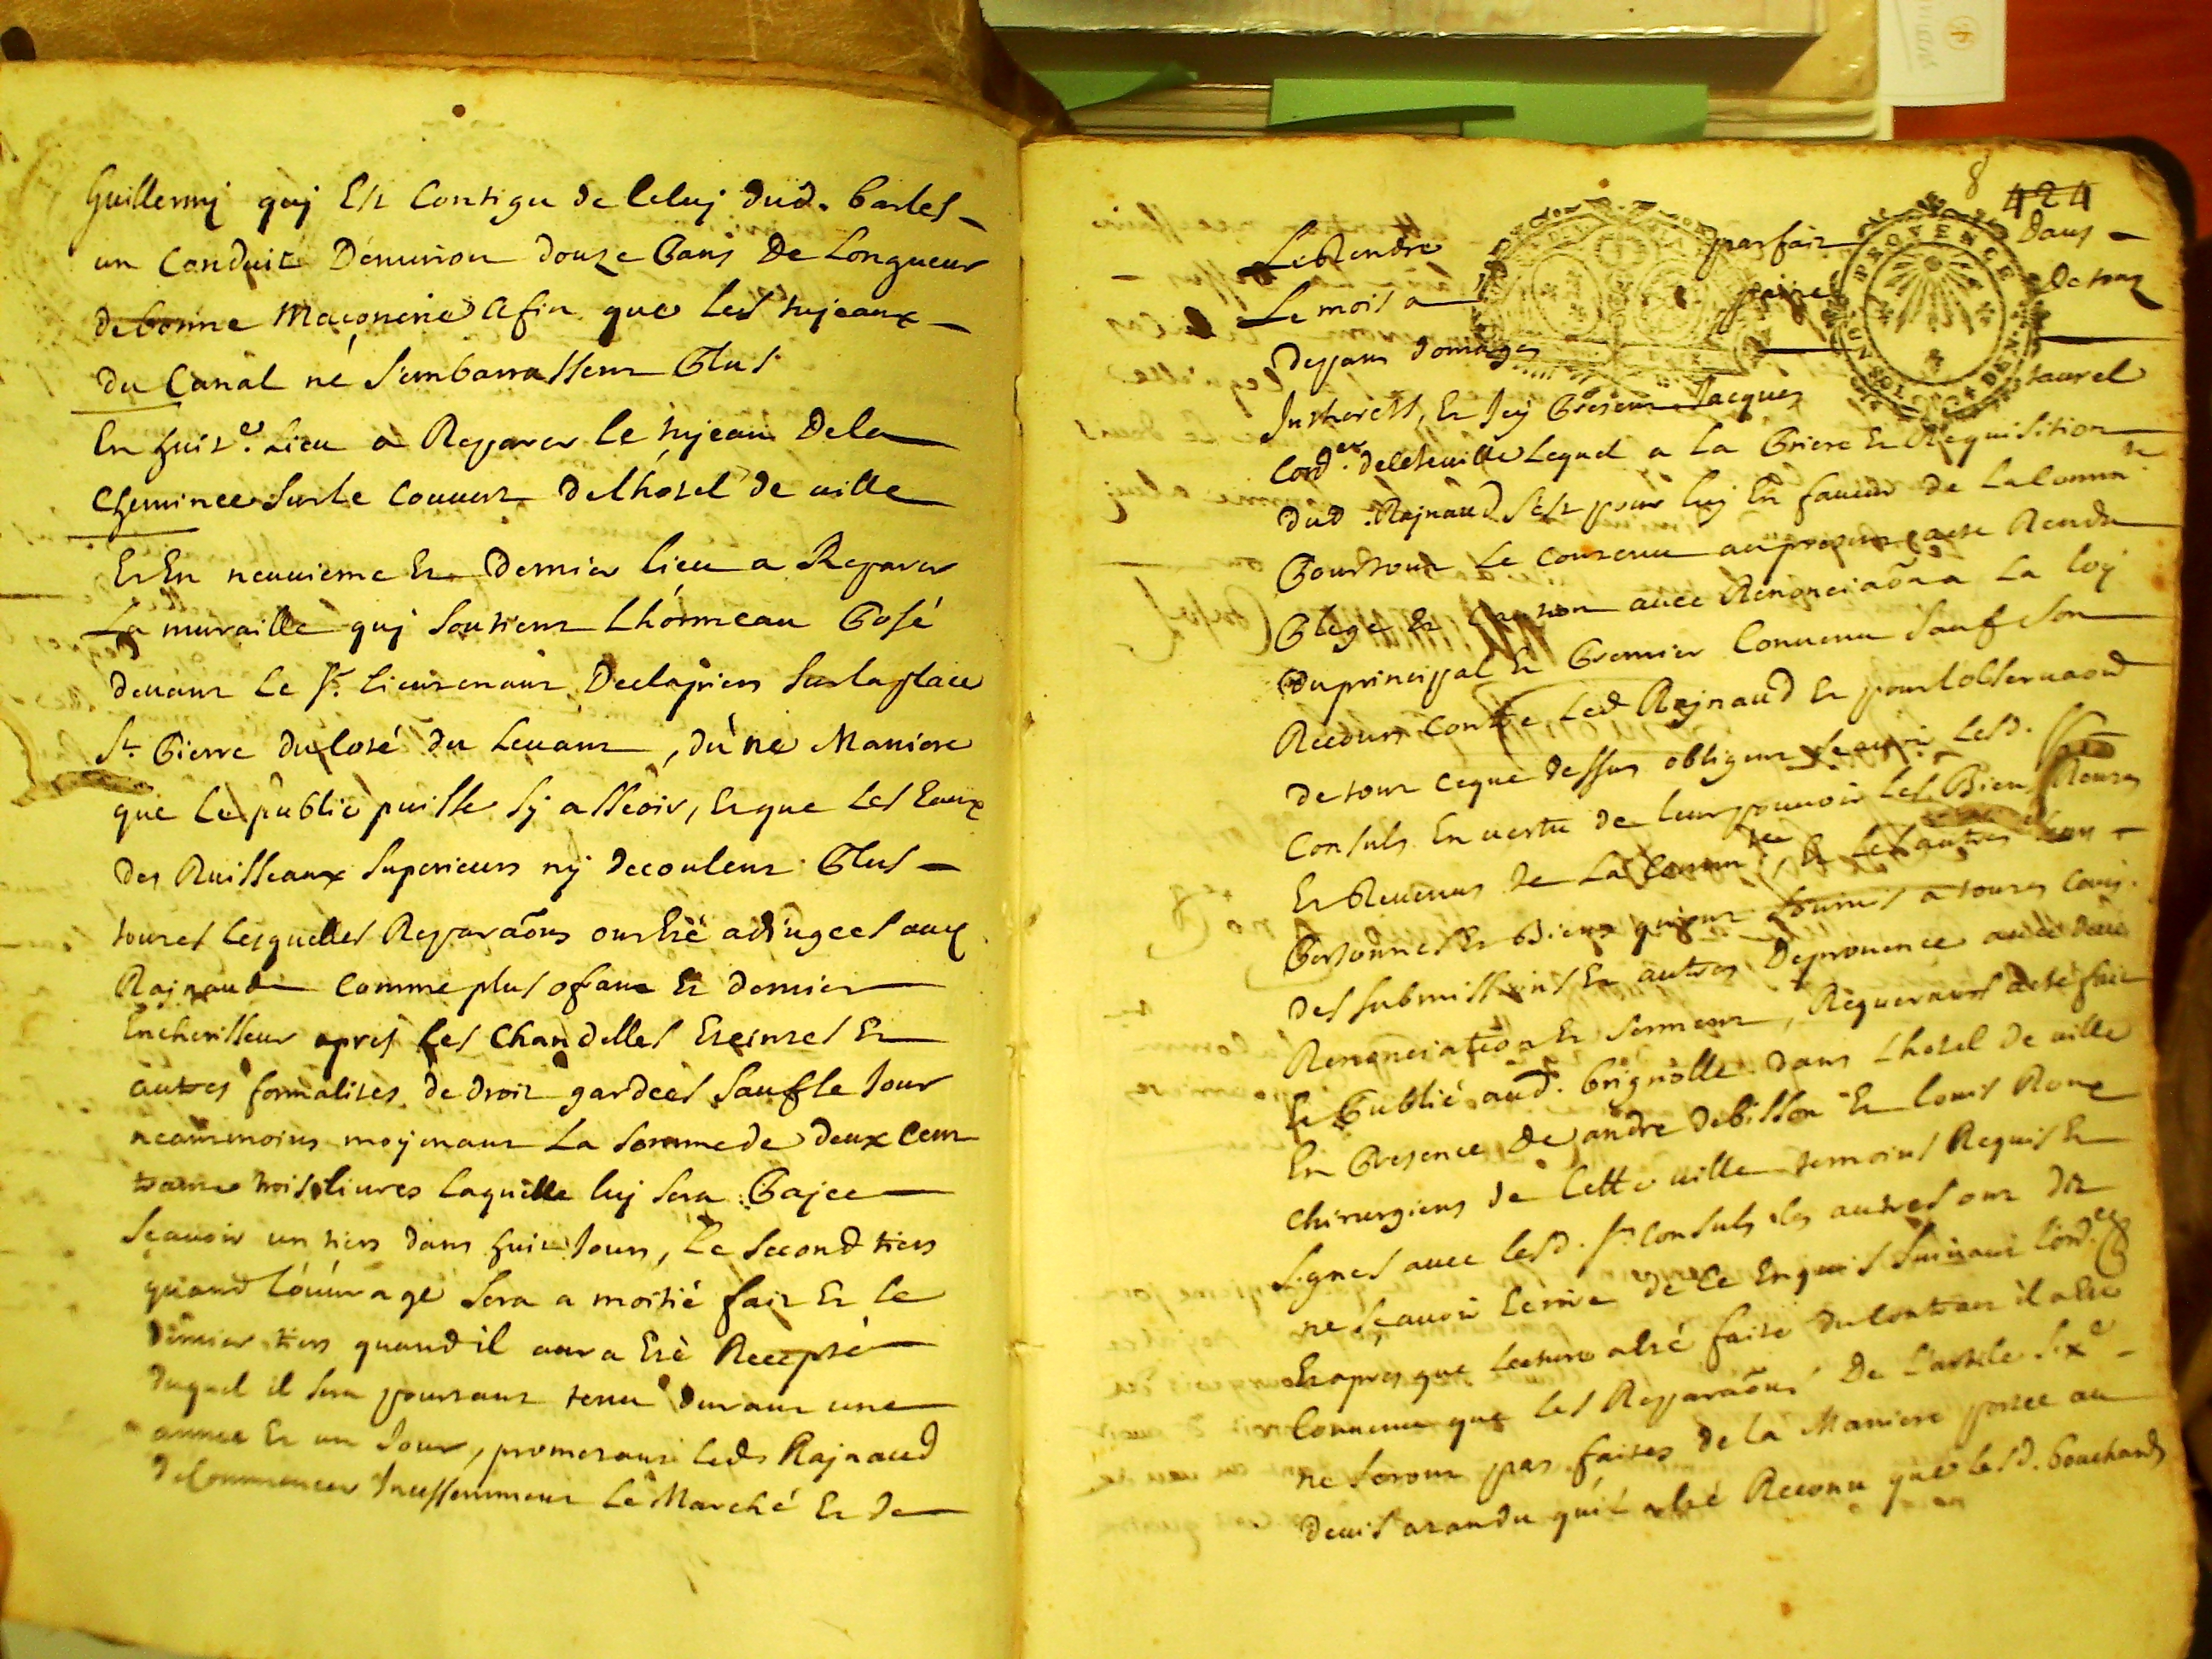 Guillermj quj Est Contigu de Celuj dud. barles
un Conduit D'environ douze Pans De Longueur
de bonne Maçonerie afin que les tujeaux
du Canal né S'embarrassent Plus
En huit.e Lieu a Repparer le tujeau Dela
Cheminee Surle Couuert delhótel de uille
Et En neuuieme Et Dernier lieu a Reparer
La muraille quj Soutient Lhórmeau Posé
deuant Le Sr. Lieutenant Declapiers Surla place
St. Pierre du Coté du Leuant, dúne Maniere
que Le public puisse Sÿ asseoir, Et que Les Eaux
des Ruisseaux Superieurs nÿ decoulent Plus
toutes Lesquelles Repparãons ont Eté adjugees aud
Rajnaud Comme plus ofrant Et dernier
Encherisseur apres Les Chandelles Eteintes Et
autres formalités de droit gardees Sauf le Jour
neantmoins mojenant La Somme de deux Cent
trois liures Laquelle luj Sera Pajee
Sçauoir un tiers dans huit Jours, Le Second tiers
quand Lóuurage Sera a moitié fait Et Le
dernier tiers quand il aura Eté Recepté
duquel il Sera pourtant tenu durant une
annee Et un Jour, prometant Led. Rajnaud
de Commencer Incessemment Le Marché Et de
8
424
Le Rendre parfait Dans
Le mois a peine De tous
Depans domages
Intherets, Et Icy Present Jacques
Cord.er de cete uille Lequel a La Priere Et Requisition
dud. Rajnaud S'est pour luj En faueur de La Comm.té
Pour tout Le Contenu au present acte Rendu
Plege Et Caution auec Renonciãon a La loy
Du principal Et Premier Conuenu Sauf Son
Recours Contre Led Rajnaud Et pour lobseruaõn
de tout ceque dessus obligent Sçauoir Lesd. Srs
Consuls En uertu de leur pouuoir Les Biens Rentes
Et Reuenus de La Comm.té Et Les autres Leurs
Personnes Et Biens quj ont Soumis a toutes Cours
des Submissions Et autres De prouence auec deüe
Renonciation Et Serment, Requerants acte fait
Et Publié aud. brignolle dans Lhotel de uille
En Presence de andré debisson Et louis Roux
Chirurgiens de Cette uille temoins Requis Et
Signes auec lesd. Srs Consuls les autres ont dit
ne Sçauoir Ecrire de Ce Enquis Suiuant L'ord.ce
Et apres que Lecture a Eté faite du Contrat il a Eté
Conuenu que les Repparãons De L'article Six.e
ne Seront pas faites de la Maniere portee au
deuis atandu quíl a Eté Reconu que lesd. bouchards
PROVENCE
UN SOL 4 DEN.